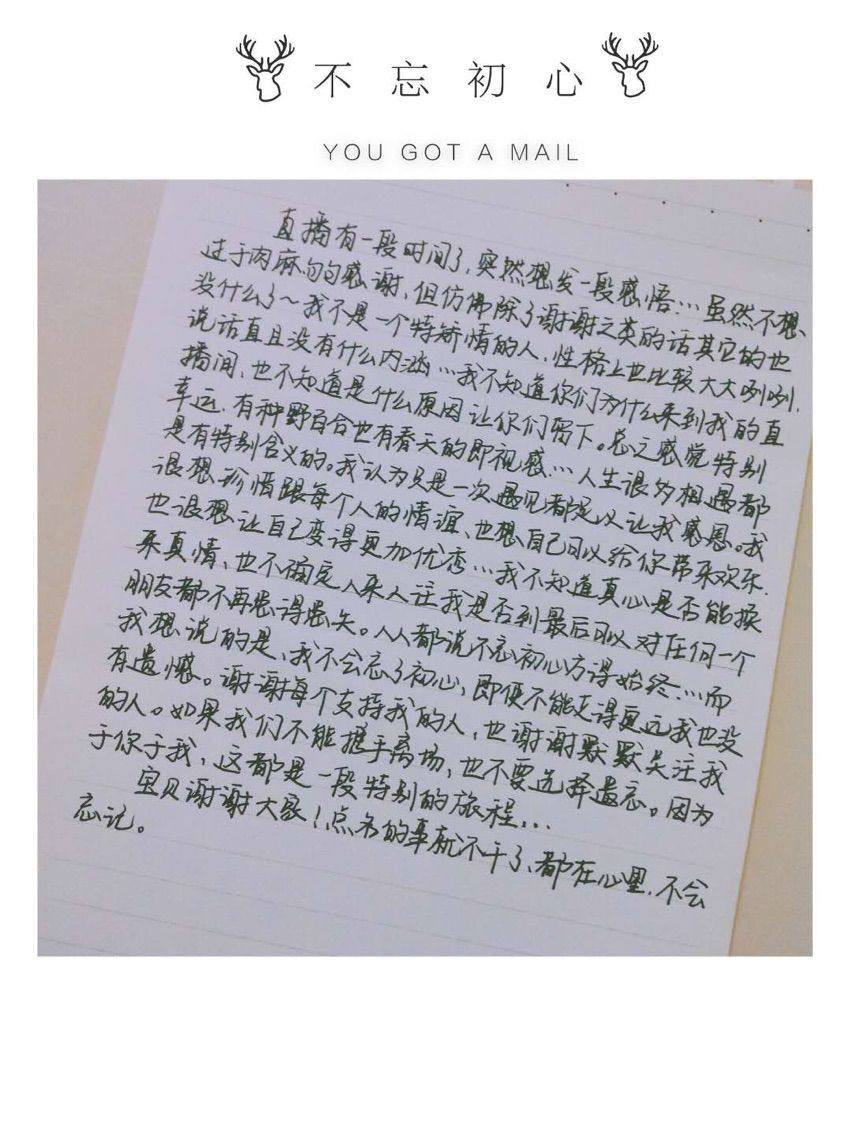 不忘初心
YOU GOT A MAIL
直播有一段时间了,突然想发一段感悟…虽然不想
过于肉麻句句感谢,但仿佛除了谢谢之类的话其它的也
没什么了~我不是一个特矫情的人,性格上也比较大大咧咧,
说话直且没有什么内涵…我不知道你们为什么来到我的直
播间,也不知道是什么原因让你们留下。总之感觉特别
幸运,有种野百合也有春天的即视感…人生很多相遇都
是有特别含义的。我认为只是一次遇见都足以让我感恩。我
很想珍惜跟每个人的情谊,也想自己可以给你带来欢乐.
也很想让自己变得更加优秀…我不知道真心是否能换
来真情,也不确定人来人往我是否到最后可以对任何一个
朋友都不再患得患失。人人都说不忘初心方得始终…而
我想说的是,我不会忘了初心,即便不能走得更远我也没
有遗憾。谢谢每个支持我的人,也谢谢默默关注我
的人。如果我们不能携手离场,也不要选择遗忘。因为
于你于我,这都是一段特别的旅程…
宝贝谢谢大家!点名的事就不干了,都在心里,不会
忘记。